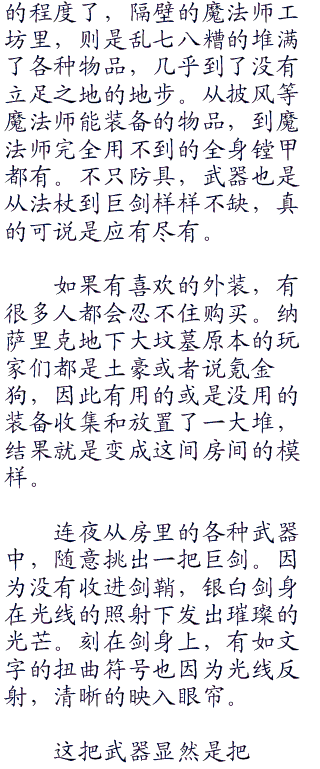 的程度了，隔壁的魔法师工
坊里，则是乱七八糟的堆满
了各种物品，几乎到了没有
立足之地的地步。从披风等
魔法师能装备的物品，到魔
法师完全用不到的全身镗甲
都有。不只防具，武器也是
从法杖到巨剑样样不缺，真
的可说是应有尽有。
如果有喜欢的外装，有
很多人都会忍不住购买。纳
萨里克地下大坟墓原本的玩
家们都是土豪或者说氪金
狗，因此有用的或是没用的
装备收集和放置了一大堆，
结果就是变成这间房间的模
样。
连夜从房里的各种武器
中，随意挑出一把巨剑。因
为没有收进剑鞘，银白剑身
在光线的照射下发出璀璨的
光芒。刻在剑身上，有如文
字的扭曲符号也因为光线反
射，清晰的映入眼帘。
这把武器显然是把